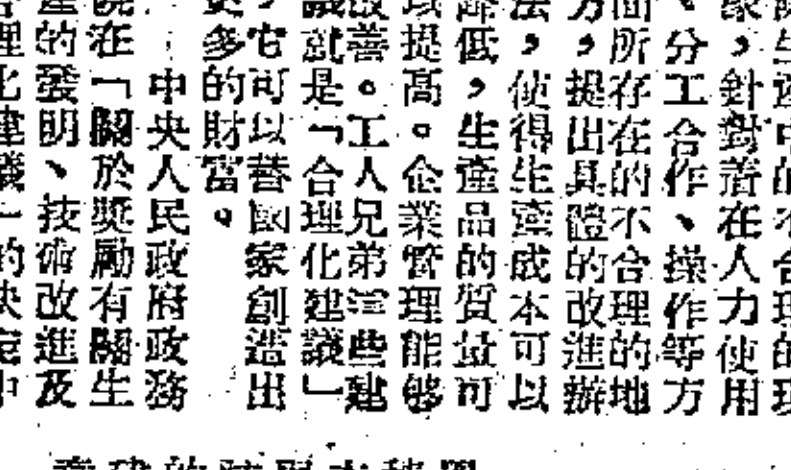 生產中的不合理的現
象，針對着在人力使用
、分工合作、操作等方
面所存在的不合理的地
方，提出具體的改進辦
法，使得生產成本可以
降低，生產品的質量可
以提高。企業管理能够
改善。工人兄弟這些建
議就是「合理化建議」
，它可以替國家創造出
更多的財富。
中央人民政府政務
院在「關於獎勵有關生
產的發明、技術改進及
合理化建議」的決定中